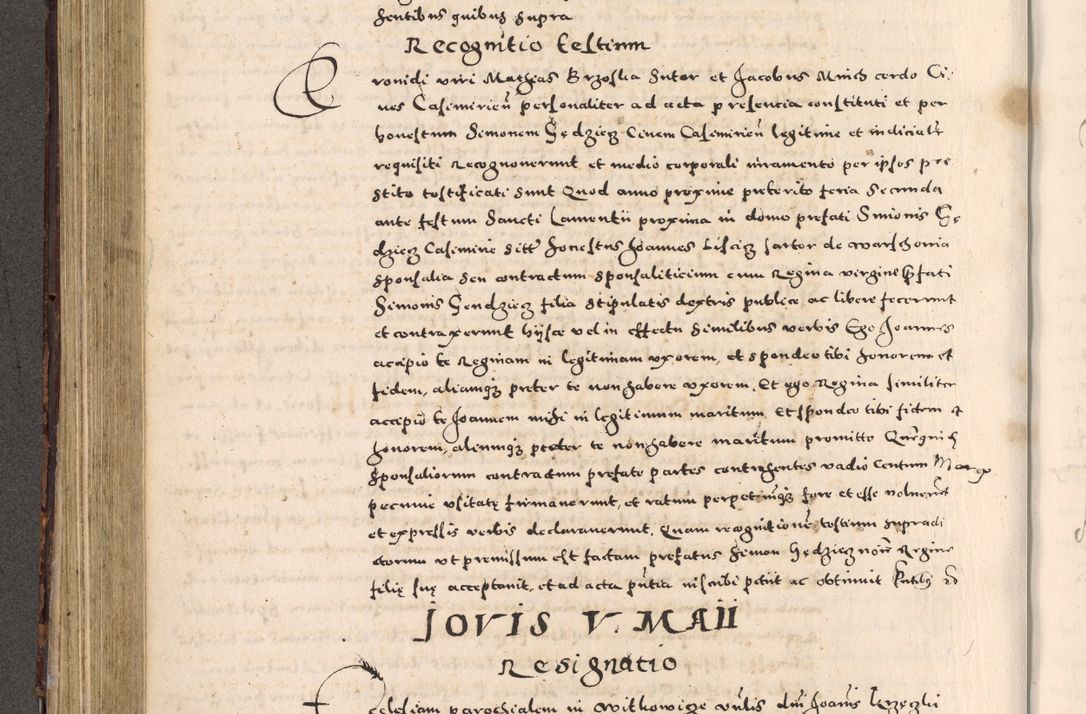 sentibus quibus supra
Recognitio testium
Providi viri Mathias Brzoska Sutor et Jacobus Mnich cerdo Ci-
ves Casimirieñ personaliter ad acta presencia constituti et per
honestum Simonem Hędziez Civem Casimirieñ legitime et indicialr
requisiti recognoverunt et medio corporali iuramento per ipsos pre
stito testificati sunt Quod anno proxime preterito feria Secunda
ante festum Sancti Laurentii proxima in domo prefati Simonis Hę
dziez Casimirie sitt honestus Joannes sartor de Warschovia
sponsalia seu contractum sponsaliticium cum Regina virgine pfati
Simonis Hendziez filia stipulatis dextris publice ac libere fecerunt
et contraxerunt hijsce vel in effectu similibus verbis Ego Joannes
accipio te Reginam in legitimam uxorem, et spondeo tibi honorem et
fidem, aliamqz preter te non habere uxorem. Et ego Regina similiter
accipio te Joannem mihi in legitimum maritum. Et spondeo tibi fidem et
honorem, aliumqz preter te non habere maritum promitto
sponsaliorum contractum prefate partes contrahentes vadio Centum Marcz
pecunie usitatę firmaverunt, et ratum perpetuumqz fore et esse voluerut
et expressis verbis declaraverunt. Quam recognitionẽ testium supradi
ctorum ut premissum est factam prefatus Simon Hędziez noĩe Regine
filię suę acceptavit, et ad acta pñtia inscribi petiit ac obtinuit
JOVIS V. MAII
Resignatio
Ecclesiam parochialem in Witkowicze dñi Joañis